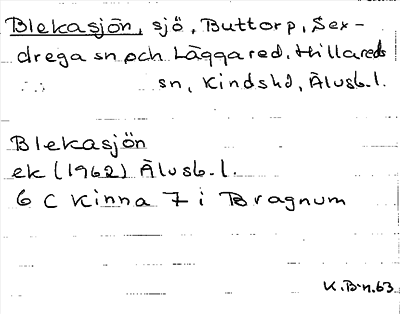 Blekasjön, sjö, Buttorp, Sex-
drega sn och Läggared, Hillareds
sn, Kindshd, Älvsb.l.
Blekasjön
ek (1962) Älvsb.l.
6 C Kinna 7 i Bragnum
K.B-n.63